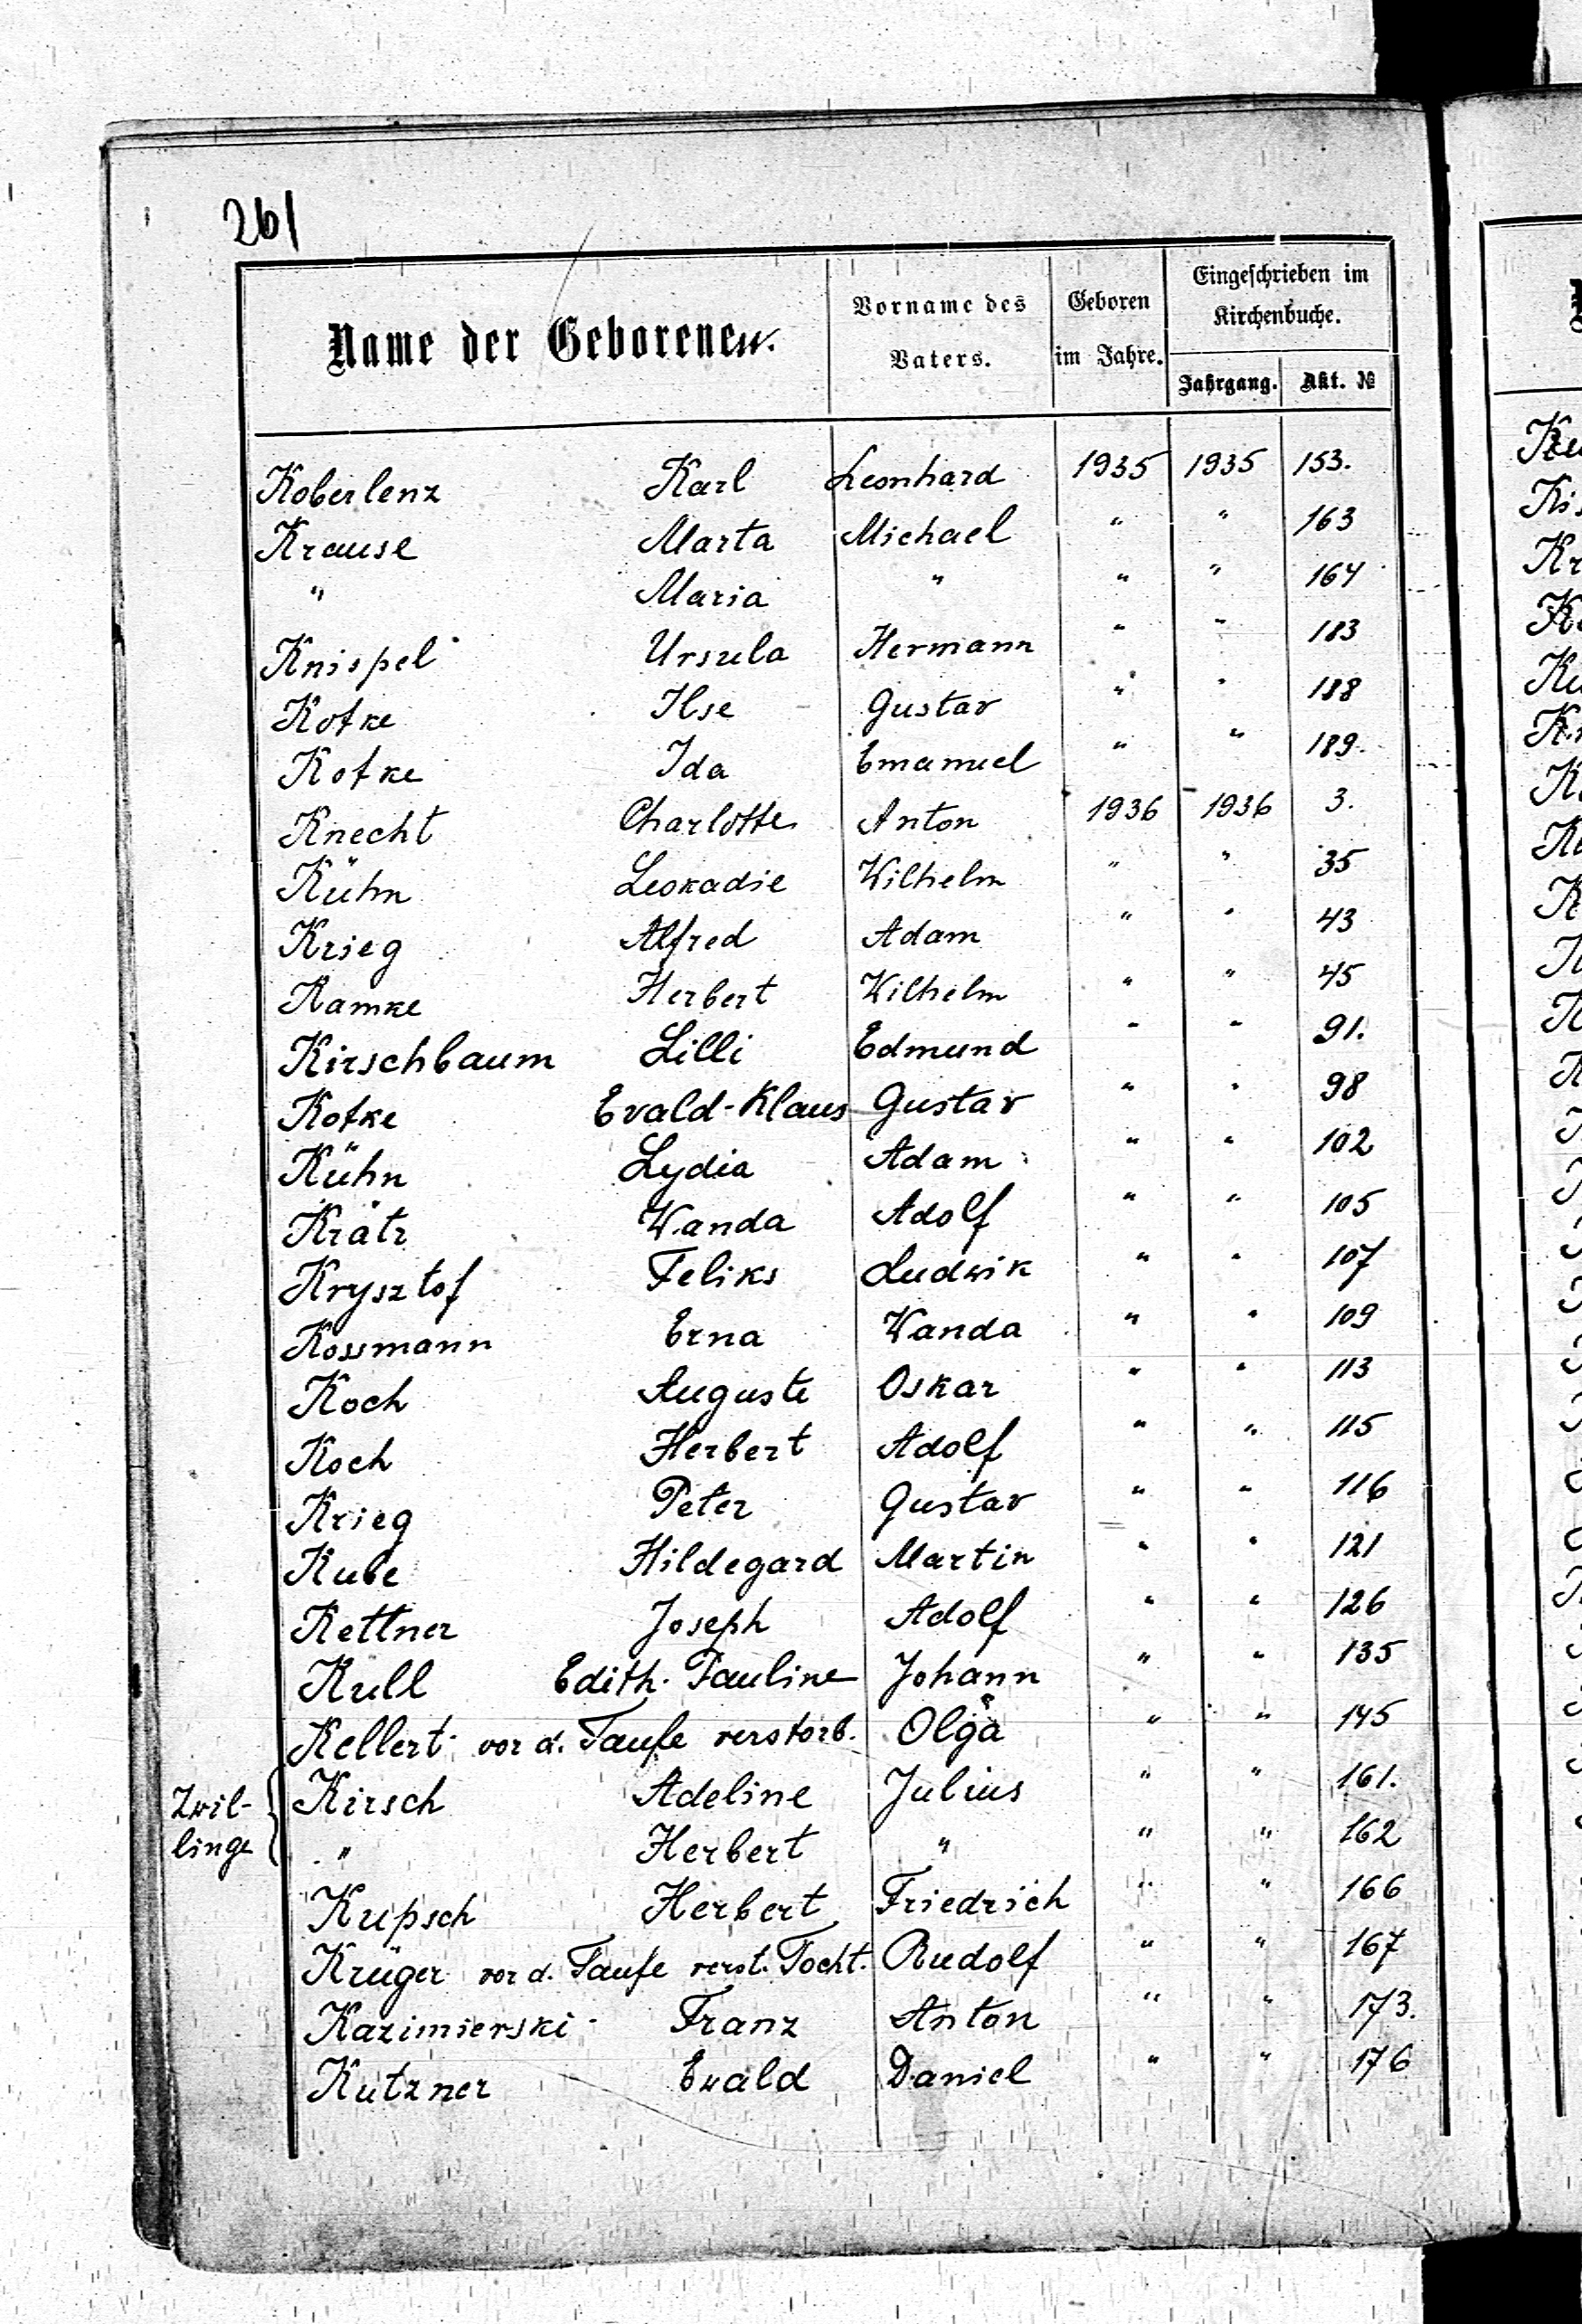 261
Name der Geborenen.
Vorname des Vaters.
Geboren im Jahre.
Eingeschrieben im Kirchenbuche.
Jahrgang. Akt. №
Koberlenz Karl Leonhard 1935 1935 153.
Krause Marta Michael " " 163
" Maria " " " 164
Knispel Ursula Hermann " " 183
Kotke Ilse Gustav " " 188
Kotke Ida Emanuel " " 189.
Knecht Charlotte Anton 1936 1936 3.
Kühn Leokadie Wilhelm " " 35
Krieg Alfred Adam " " 43
Kamke Herbert Wilhelm " " 45
Kirschbaum Lilli Edmund " " 91.
Kotke Evald-Klaus Gustav " " 98
Kühn Lydia Adam " " 102
Krätz Wanda Adolf " " 105
Krysztof Feliks Ludwik " " 107
Kossmann Erna Wanda " " 109
Koch Auguste Oskar " " 113
Koch Herbert Adolf " " 115
Krieg Peter Gustav " " 116
Kube Hildegard Martin " " 121
Kettner Joseph Adolf " " 126
Kull Edith-Pauline Johann " " 135
Kellert vor d. Taufe verstorb. Olga " " 145
Zwil- Kirsch Adeline Julius " " 161.
linge " Herbert " " " 162
Kupsch Herbert Friedrich " " 166
Krüger vor d. Taufe verst. Tocht. Rudolf " " 167
Kazimierski Franz Anton " " 173.
Kutzner Ewald Daniel " " 176